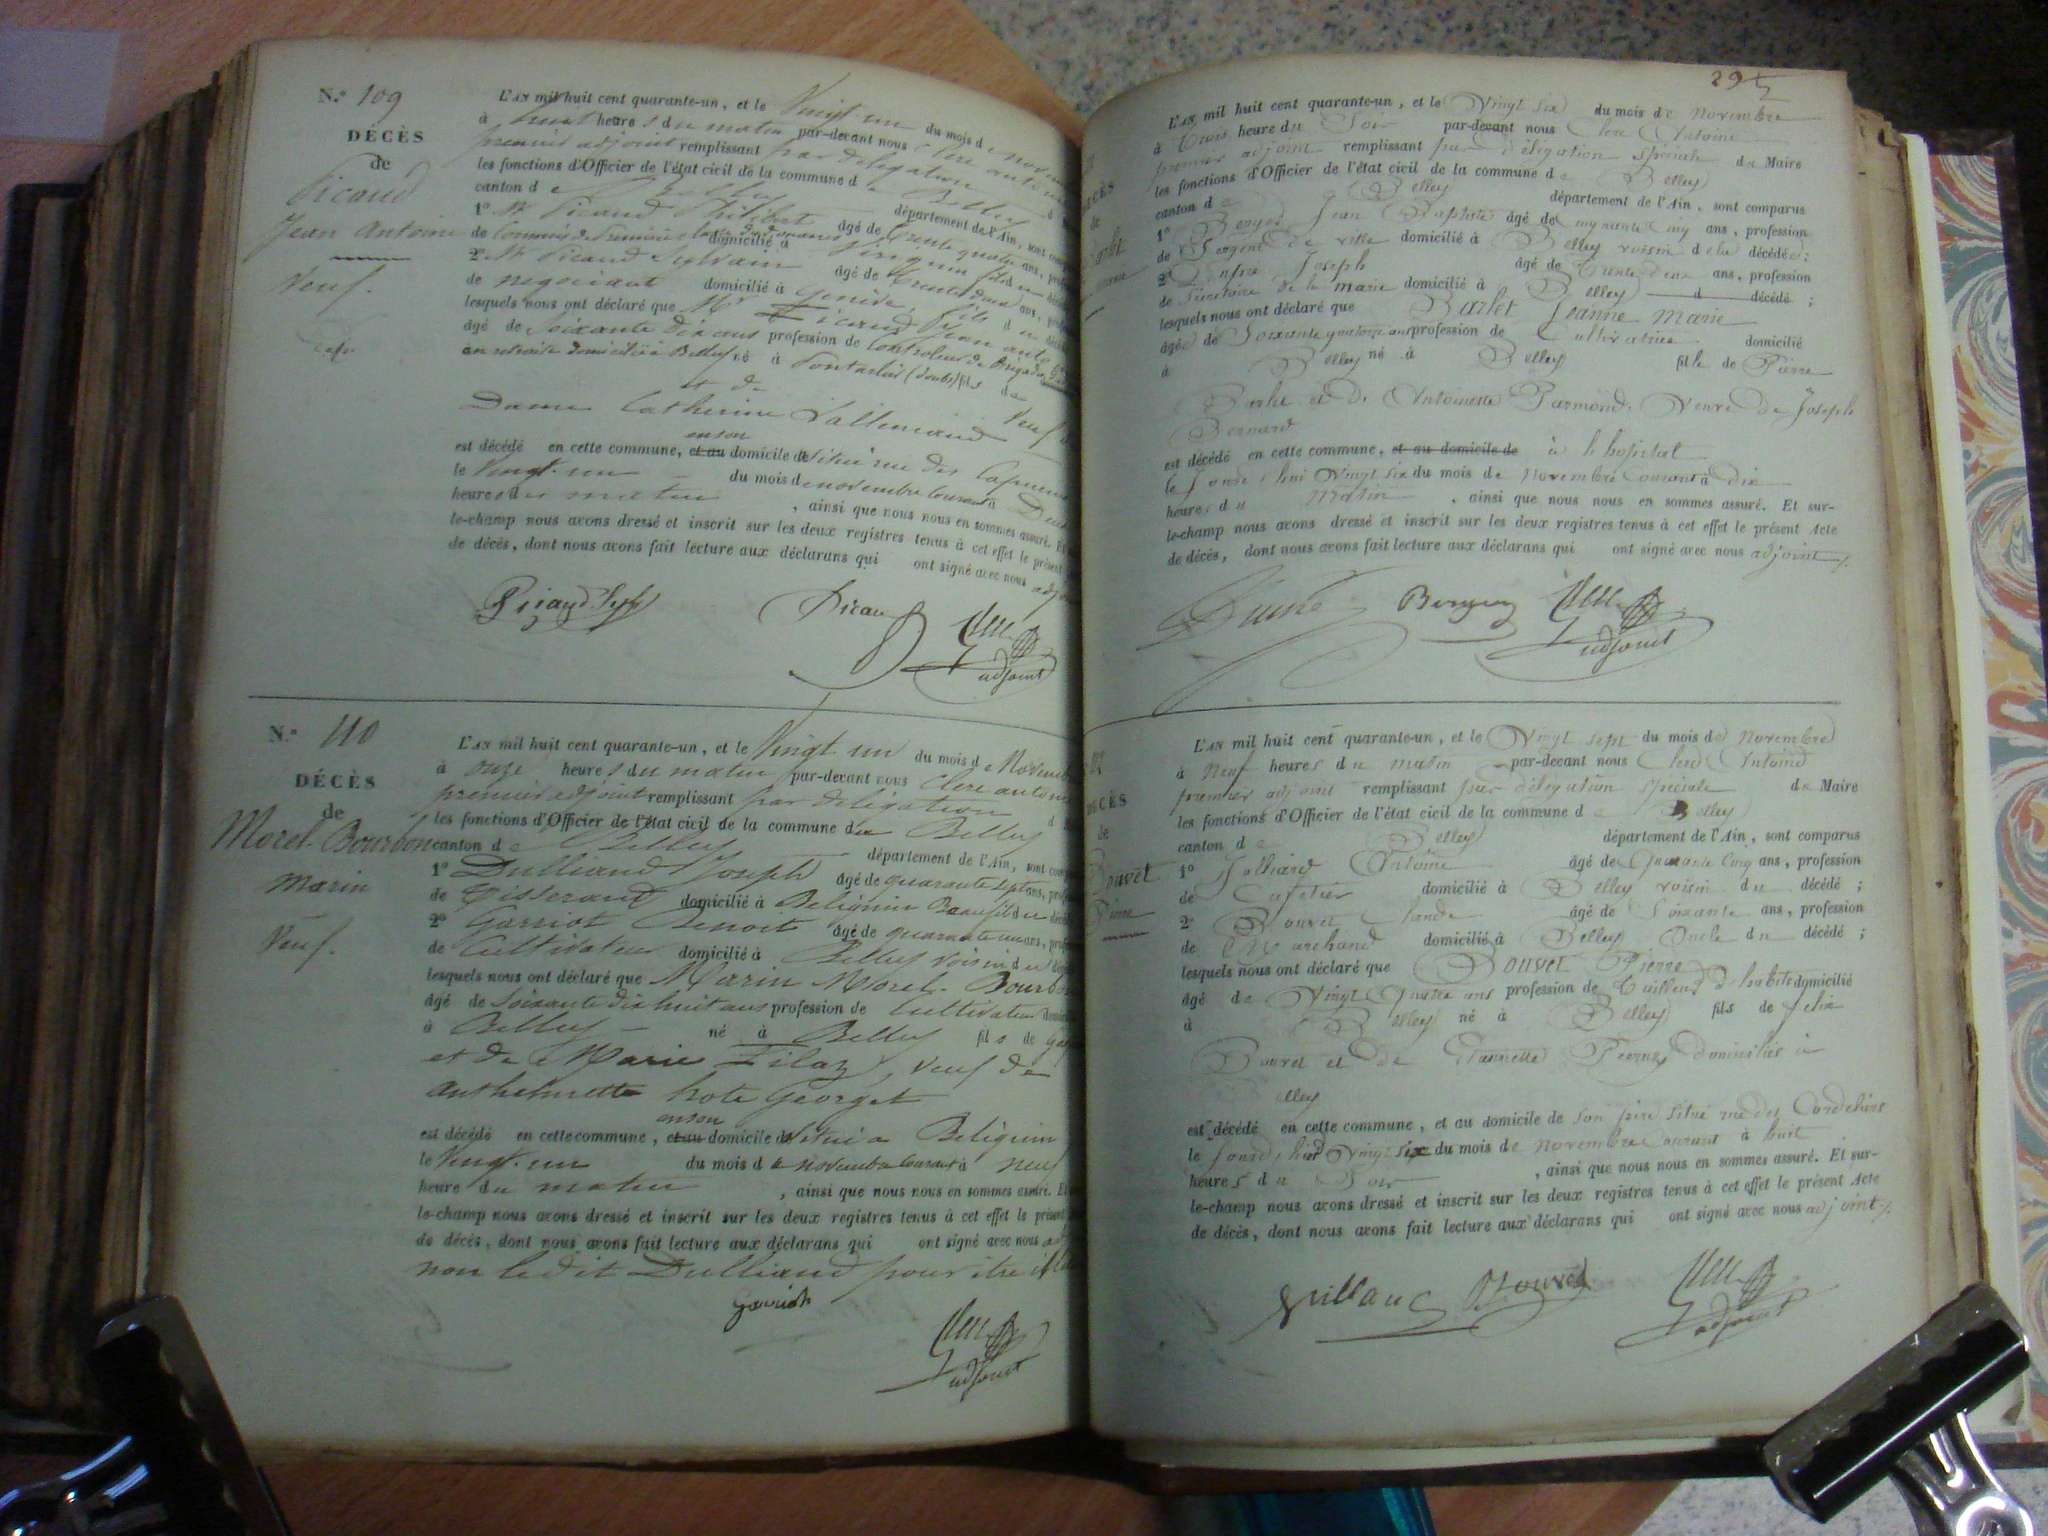 N.º 109
DÉCÈS
de
Picaud
Jean Antoine
Veuf.
L'AN mil huit cent quarante-un, et le Vingt un du mois de
à huit heures du matin par-devant nous Clerc
premier adjoint remplissant par délégation
les fonctions d'Officier de l'état civil de la commune de Belley
canton de Belley département de l'Ain, sont
1º Mr Picaud Philibert âgé de trente quatre ans,
de Commis de première classe domicilié à
2º Mr Picaud Sylvain âgé de trente deux ans,
de négociant domicilié à Genève, fils du
lesquels nous ont déclaré que Mr Picaud Jean
âgé de soixante dix ans profession de Controleur de Brigade
en retraite domicilié à Belley né à Pontarlier (doubs) fils de
et de
Dame Catherine Lallemand Veuf
est décédé en cette commune, et au en son domicile situé rue des Capucins
le Vingt-un du mois de novembre courant à Deux
heures du matin , ainsi que nous nous en sommes assuré. Et
le-champ nous avons dressé et inscrit sur les deux registres tenus à cet effet le présent
de décès, dont nous avons fait lecture aux déclarans qui ont signé avec nous
adjoint
N.º 110
DÉCÈS
de
Morel-Bourbon
Marin
Veuf.
L'AN mil huit cent quarante-un, et le Vingt un du mois de
à onze heures du matin par-devant nous Clerc antoine
premier adjoint remplissant par délégation
les fonctions d'Officier de l'état civil de la commune de Belley
canton de Belley département de l'Ain, sont
1º Dulliand Joseph âgé de quarante sept ans,
de Tisserand domicilié à Beliguin Beaufils du
2º Garriot Benoit âgé de quarante un ans,
de Cultivateur domicilié à Belley voisin du
lesquels nous ont déclaré que Marin Morel-Bourbon
âgé de soixante dix huit ans profession de Cultivateur
à Belley né à Belley fils de
et de Marie Pilaz, veuf de
anthelmette hote Georget
est décédé en cette commune, et au en son domicile situé a Beliguin
le Vingt-un du mois de novembre courant à neuf
heure du matin , ainsi que nous nous en sommes assuré. Et
le-champ nous avons dressé et inscrit sur les deux registres tenus à cet effet le présent
de décès, dont nous avons fait lecture aux déclarans qui ont signé avec nous
non ledit Dulliand pour être
garriot
adjoint
295
L'AN mil huit cent quarante-un, et le Vingt six du mois de Novembre
à Trois heure du Soir par-devant nous Clerc Antoine
premier adjoint remplissant par délégation spéciale de Maire
les fonctions d'Officier de l'état civil de la commune de Belley
canton de Belley département de l'Ain, sont comparus
1º Berger Jean Baptiste âgé de ans, profession
de Sergent de ville domicilié à Belley voisin de la décédée;
2º Dupré Joseph âgé de Trente deux ans, profession
de Secrétaire de la mairie domicilié à Belley d décédé ;
lesquels nous ont déclaré que Barlet Jeanne Marie
âgée de Soixante quatorze ans profession de Cultivatrice domicilié
à Belley né à Belley fille de Pierre
Barlet et de Antoinette Parmond, Veuve de Joseph
Bernard
est décédé en cette commune, et au domicile de à l'hopital
le jourd'hui Vingt six du mois de novembre courant à dix
heures du matin , ainsi que nous nous en sommes assuré. Et sur-
le-champ nous avons dressé et inscrit sur les deux registres tenus à cet effet le présent Acte
de décès, dont nous avons fait lecture aux déclarans qui ont signé avec nous adjoint
Berger
adjoint
DÉCÈS
de
Bouvet
Pierre
L'AN mil huit cent quarante-un, et le Vingt sept du mois de novembre
à Neuf heures du matin par-devant nous Clerc Antoine
premier adjoint remplissant par délégation spéciale de Maire
les fonctions d'Officier de l'état civil de la commune de Belley
canton de Belley département de l'Ain, sont comparus
1º Antoine âgé de Quarante Cinq ans, profession
de Cafetier domicilié à Belley voisin du décédé ;
2º Bouvet Claude âgé de Soixante ans, profession
de Marchand domicilié à Belley Oncle du décédé ;
lesquels nous ont déclaré que Bouvet Pierre
âgé de Vingt Quatre ans profession de Tailleur d'habits domicilié
à Belley né à Belley fils de felix
Bouvet et de domiciliés à
Belley
est décédé en cette commune, et au domicile de son père situé rue des Cordeliers
le jourd'hier vingt six du mois de novembre courant à huit
heures du Soir , ainsi que nous nous en sommes assuré. Et sur-
le-champ nous avons dressé et inscrit sur les deux registres tenus à cet effet le présent Acte
de décès, dont nous avons fait lecture aux déclarans qui ont signé avec nous adjoint
Bouvet
adjoint